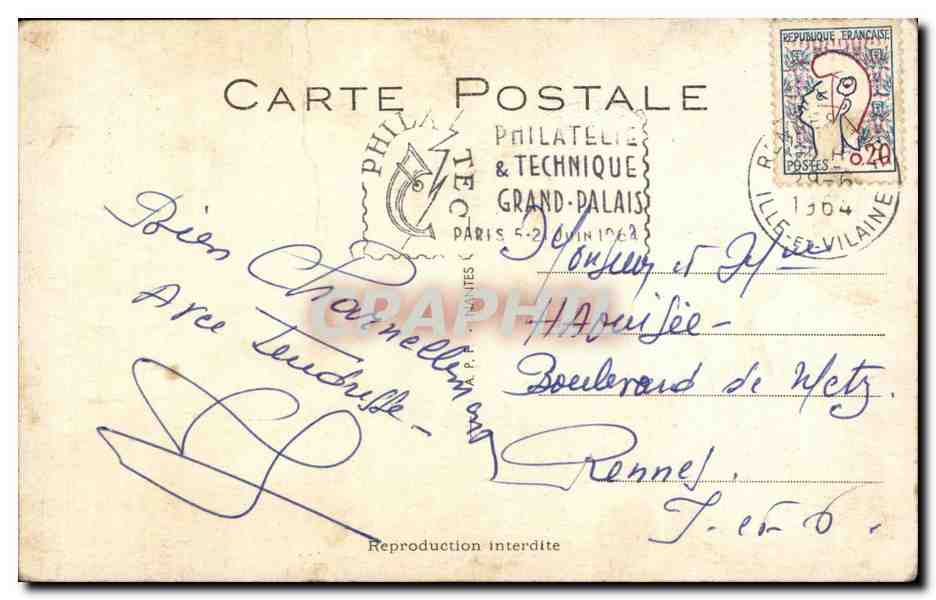 REPUBLIQUE FRANÇAISE
POSTES 0.20
CARTE POSTALE
PHILATEC
PHILATELIE
& TECHNIQUE
GRAND-PALAIS
PARIS 5-21 JUIN 1964
RE
1964
ILLE-ET-VILAINE
Bien Charnellement
Avec Tendresse -
Monsieur et Mme
Boulevard de Metz.
Rennes.
I-et-V.
A. P. P. - NANTES
CPAPHIL
Reproduction interdite